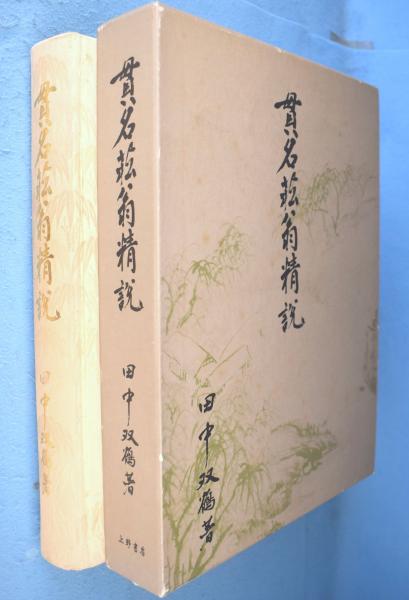 貫名菘翁精説
田中双鶴著
貫名菘翁精説
田中双鶴著
上野書店
貫名菘翁精説
田中双鶴著